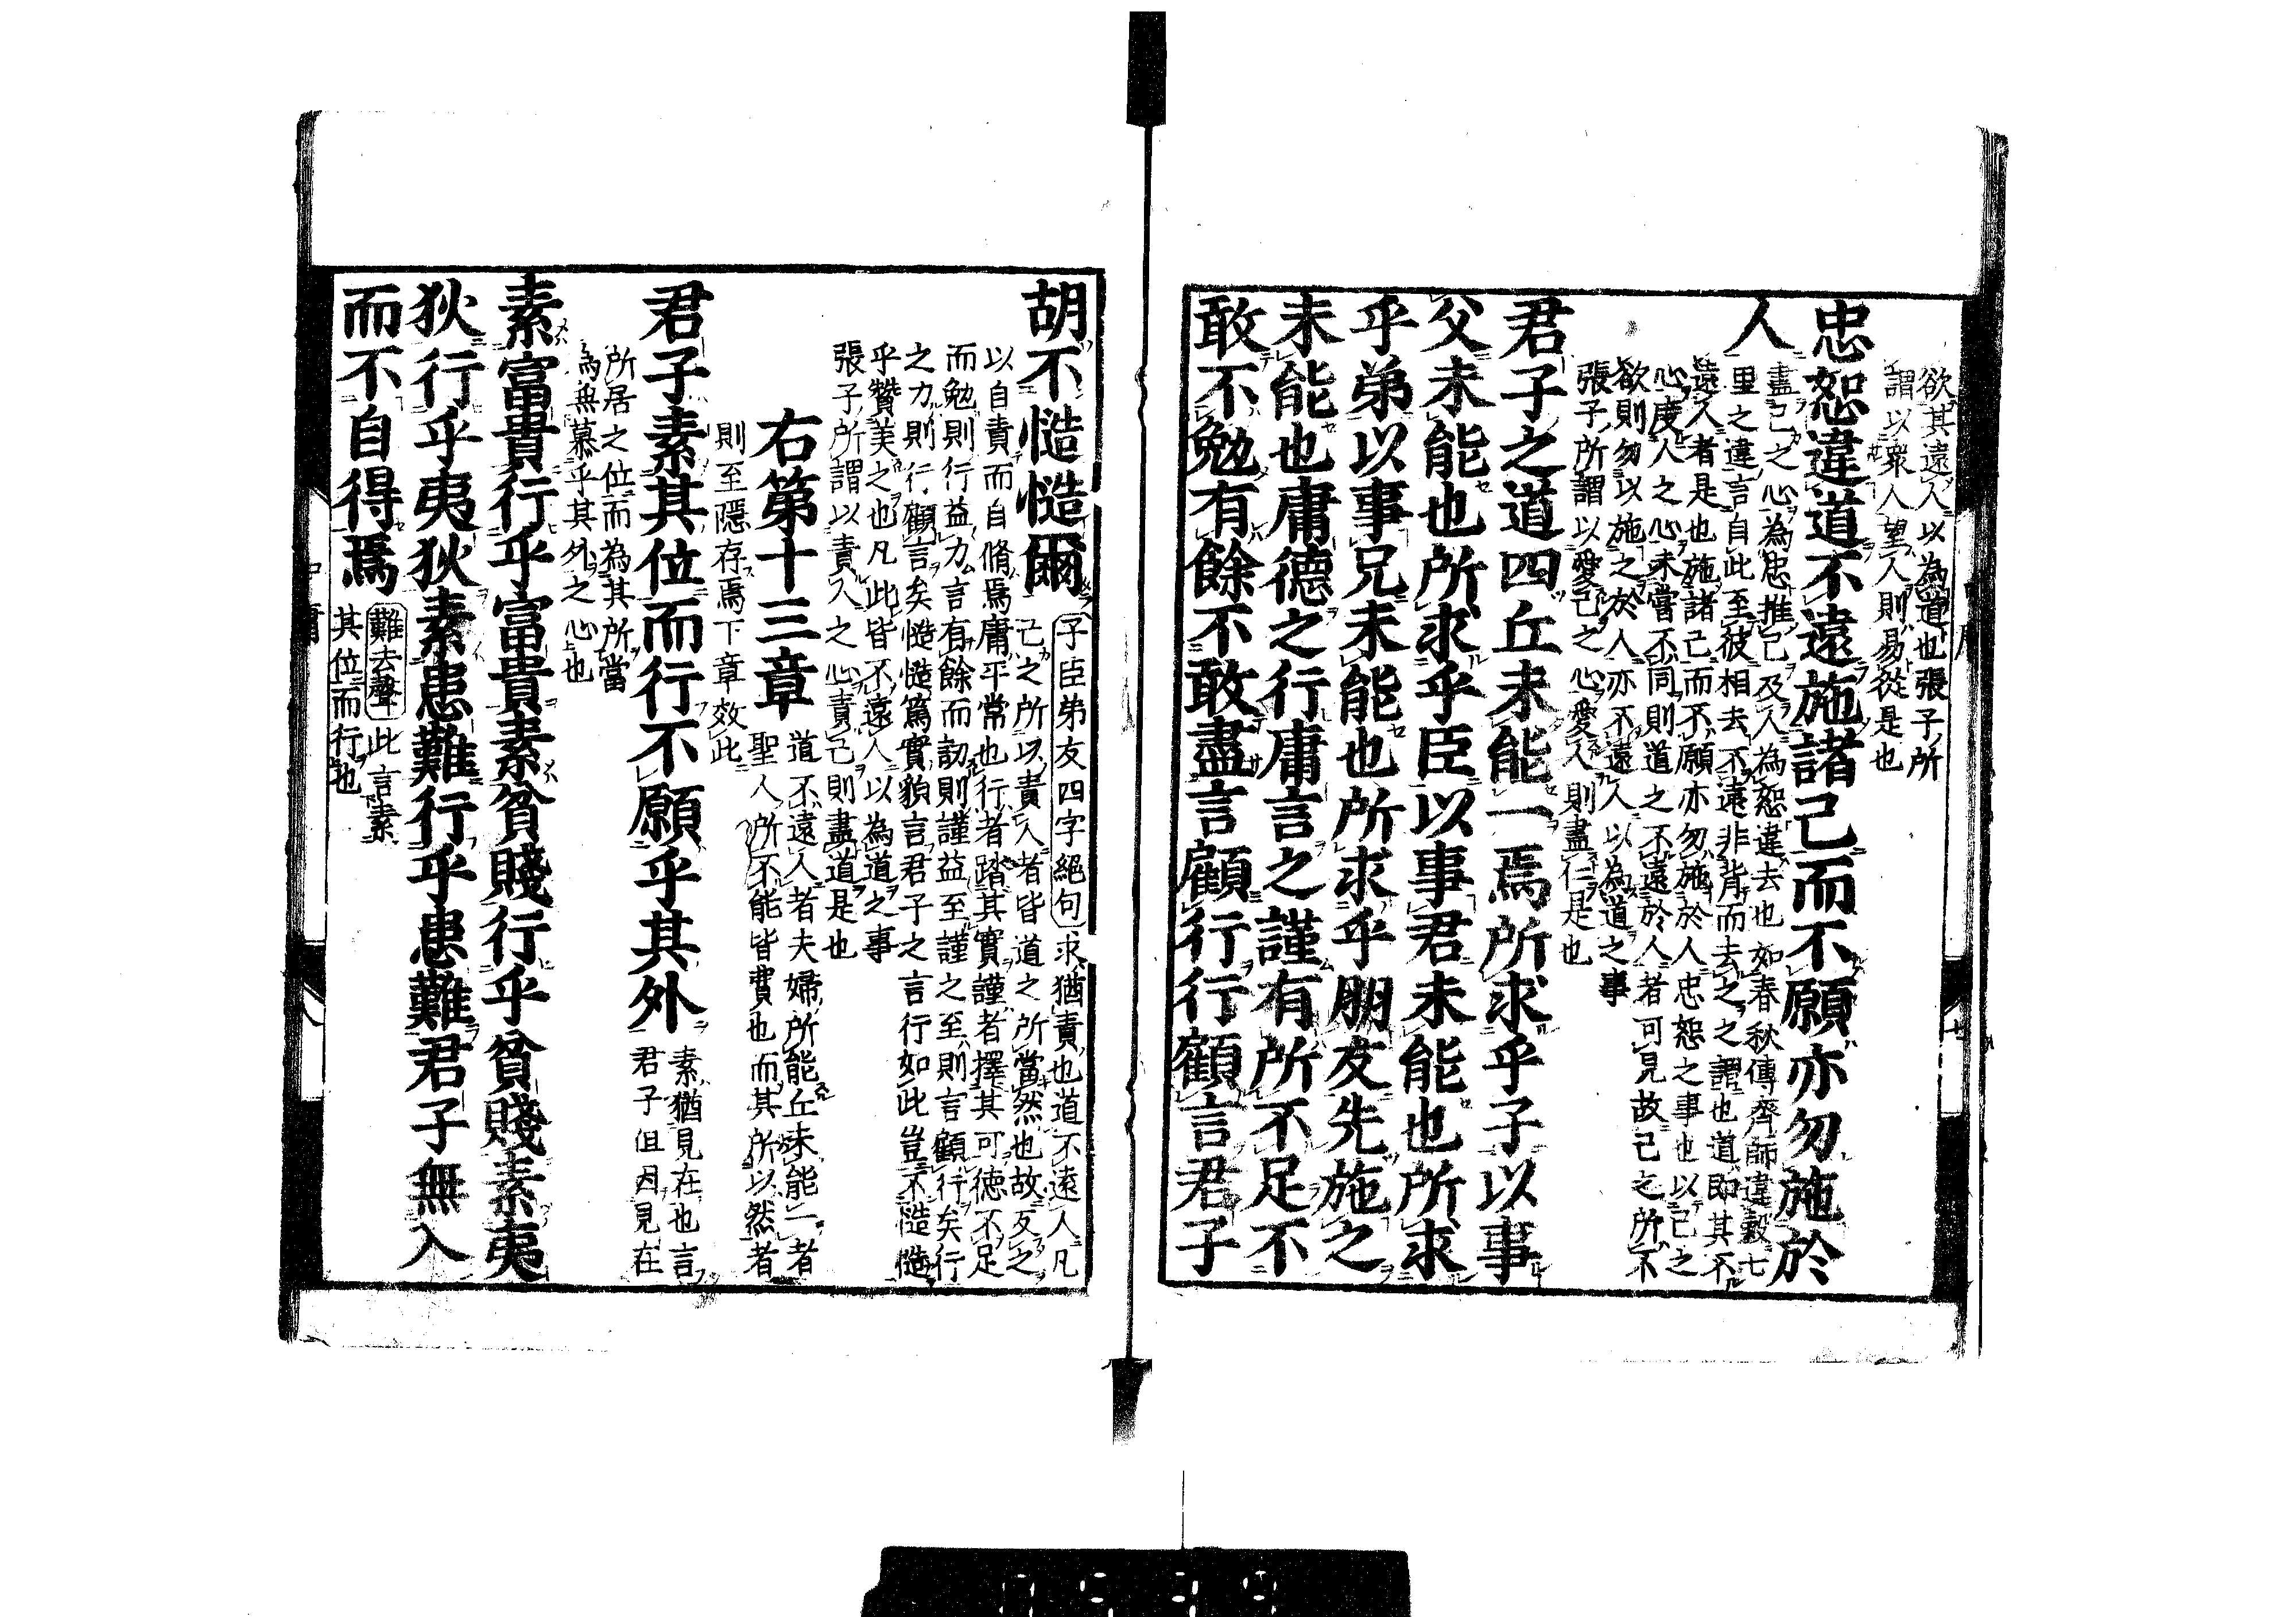 欲其遠人以為道也張子所
謂以衆人望人則易從是也
忠恕違道不遠施諸己而不願亦勿施於
人
盡己之心為忠推己及人為恕違去也如春秋傳齊師違穀七
里之違言自此至彼相去不遠非背而去之之謂也道即其不
遠人者是也施諸己而不願亦勿施於人忠恕之事也以己之
心度人之心未嘗不同則道之不遠於人者可見故己之所不
欲則勿以施之於人亦不遠人以為道之事
張子所謂以愛己之心愛人則盡仁是也
君子之道四丘未能一焉所求乎子以事
父未能也所求乎臣以事君未能也所求
乎弟以事兄未能也所求乎朋友先施之
未能也庸德之行庸言之謹有所不足不
敢不勉有餘不敢盡言顧行行顧言君子
胡不慥慥爾
子臣弟友四字絕句求猶責也道不遠人凡
己之所以責人者皆道之所當然也故反之
以自責而自脩焉庸平常也行者踏其實謹者擇其可徳不足
而勉則行益力言有餘而訒則謹益至謹之至則言顧行矣行
之力則行顧言矣慥慥篤實貌言君子之言行如此豈不慥慥
乎贊美之也凡此皆不遠人以為道之事
張子所謂以責人之心責己則盡道是也
右第十三章
道不遠人者夫婦所能丘未能一者
聖人所不能皆費也而其所以然者
則至隱存焉下章效此
君子素其位而行不願乎其外
素猶見在也言
君子但因見在
所居之位而為其所當
為無慕乎其外之心也
素富貴行乎富貴素貧賤行乎貧賤素夷
狄行乎夷狄素患難行乎患難君子無入
而不自得焉
難去聲此言素
其位而行也